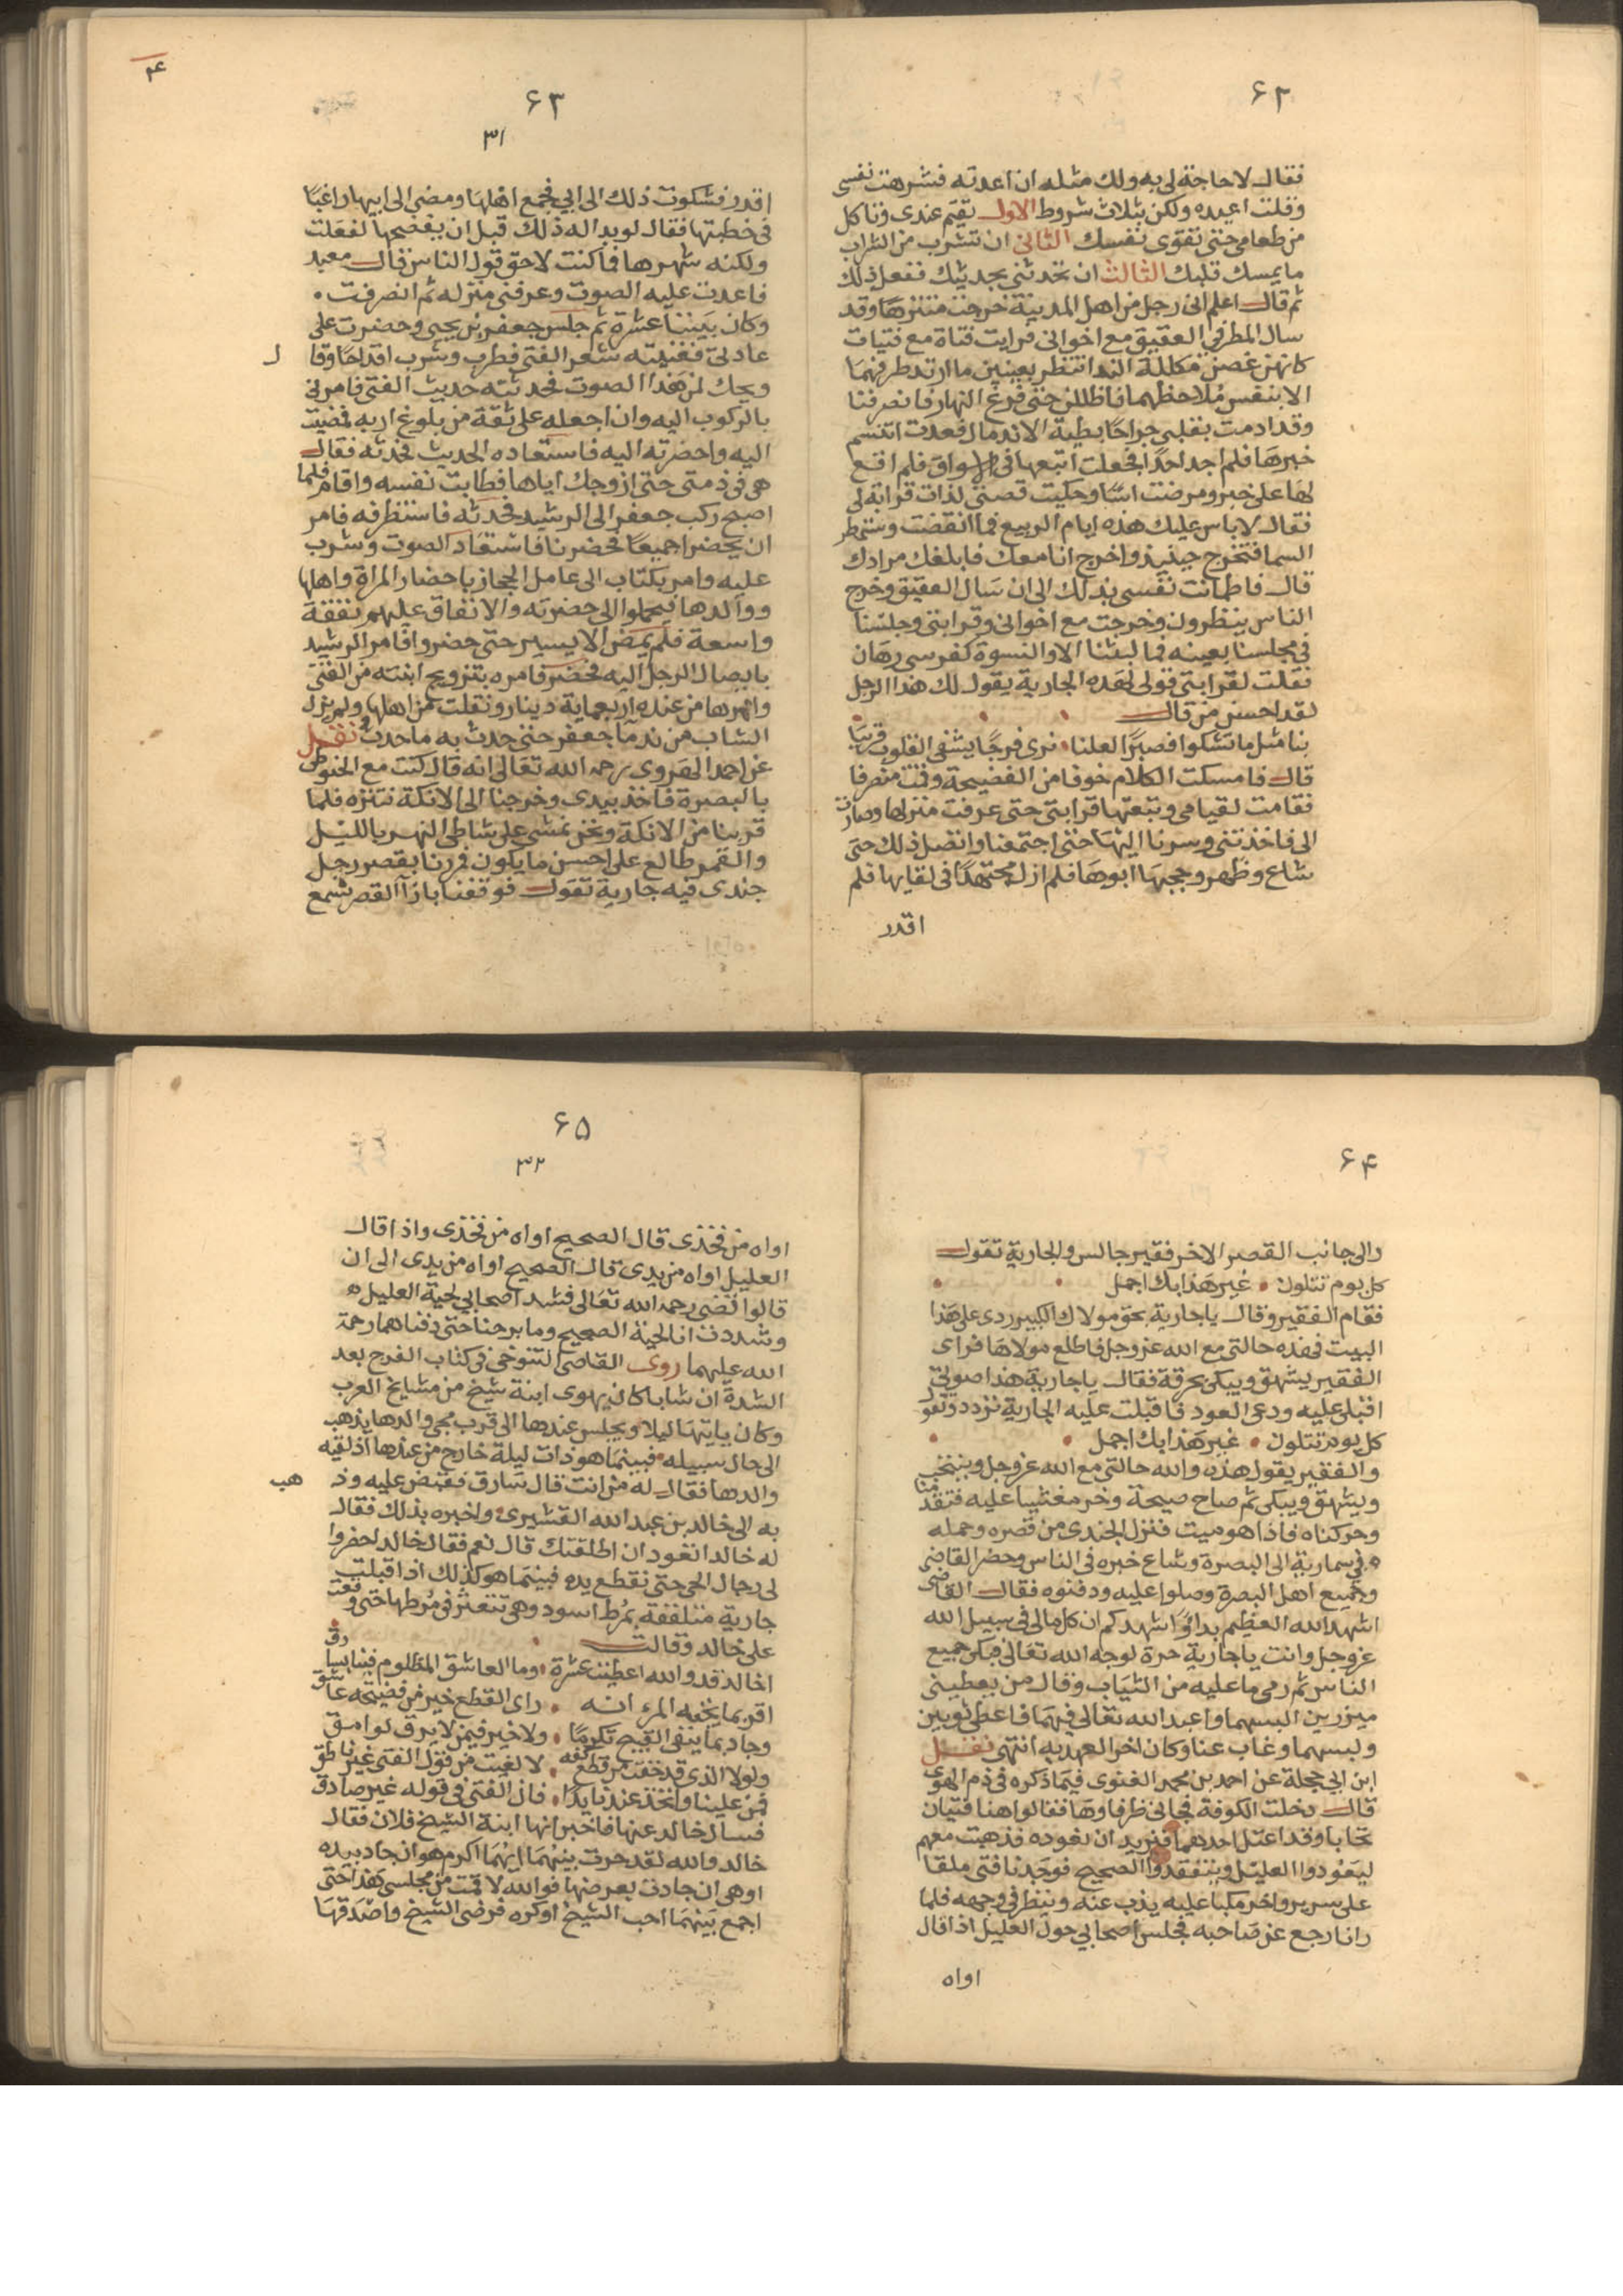 ٦٢
فقال لا حاجة لي به ولك مثله ان اعدته فشرهت نفسي
وقلت اعيده ولكن بثلاث شروط الاول تقيم عندي وتاكل
من طعامي حتى تقوى نفسك الثاني ان تشرب من الشراب
ما يمسك قلبك الثالث ان تحدثني بحديثك ففعل ذلك
ثم قال اعلم اني رجل من اهل المدينة خرجت متنزها وقد
سال المطر في العقيق مع اخواني فرايت فتاة مع فتيات
كانهن غصن مكللة الندا تنظر بعينين ما ارتد طرفهما
الا بنفس ملاحظهما فاظللن حتى فرغ النهار فانصرفنا
وقد ادمت بقلبي جراحا بطية الاندمال فعدت اتنسم
خبرها فلم اجد احدا فجعلت اتبعها في الاسواق فلم اقع
لها على خبر ومرضت اسًا وحكيت قصتي لذات قرابة لي
فقال لا باس عليك هذه ايام الربيع فما انقضت وستمطر
السما فتخرج حينيذ واخرج انا معك فابلغك مرادك
قال فاطمانت نفسي بذلك الى ان سال العقيق وخرج
الناس ينظرون وخرجت مع اخواني وقرابتي وجلسنا
في مجلسنا بعينه فما لبثنا الا والنسوة كفرسي رهان
فقلت لقرابتي قولي لهذه الجارية يقول لك هذا الرجل
لقد احسن من قال
بنا مثل ما تشكوا فصبرًا لعلنا نرى فرجًا يشفى القلوب قريبًا
قال فامسكت الكلام خوفا من الفضيحة وقمت منصرفا
فقامت لقيامي وتبعتها قرابتي حتى عرفت منزلها وصارت
الي فاخذتني وسرنا اليها حتى اجتمعنا واتصل ذلك حتى
شاع وظهر وحجبها ابوها فلم ازل مجتهدًا في لقايها فلم
اقدر
٦٣
٣١
اقدر فشكوت ذلك الى ابي فجمع اهلها ومضى الى ابيها راغبًا
في خطبتها فقال لو بدا له ذلك قبل ان يفضحها لفعلت
ولكنه شهرها فما كنت لاحق قول الناس قال معبد
فاعدت عليه الصوت وعرفني منزله ثم انصرفت
وكان بيننا عشرة ثم جلس جعفر بن يحيى وحضرت على
عادتي فغنيته شعر الفتى فطرب وشرب اقداحًا وقا ل
ويحك لمن هذا الصوت فحدثته حديث الفتى فامرني
بالركوب اليه وان اجعله على ثقة من بلوغ اربه فمضيت
اليه واحضرته اليه فاستعاده الحديث فحدثه فقال
هي في ذمتي حتى ازوجك اياها فطابت نفسه واقام فلما
اصبح ركب جعفر الى الرشيد فحدثه فاستظرفه فامر
ان يحضرا جميعًا فحضرنا فاستعاد الصوت وشرب
عليه وامر بكتاب الى عامل الحجاز باحضار المراة واهلها
ووالدها فيحملوا الى حضرته والانفاق عليهم نفقة
واسعة فلم يمض الا يسير حتى حضروا فامر الرشيد
بايصال الرجل اليه فحضر فامره بتزويج ابنته من الفتى
وامهرها من عنده اربعماية دينار ونقلت من اهلها ولم يزل
الشاب من ندما جعفر حتى حدث به ما حدث نقل
عن احمد الهروي رحمه الله تعالى انه قال كنت مع الحنوطي
بالبصرة فاخذ بيدي وخرجنا الى الانكة نتنزه فلما
قربنا من الانكة ونحن نمشي على شاطي النهر بالليل
والقمر طالع على احسن ما يكون فمرنا بقصر رجل
جندي فيه جارية تقول فوقفنا بازآ القصر نسمع
٦٤
والى جانب القصر الاخر فقير جالس والجارية تقول
كل يوم تتلون غير هذا بك اجمل
فقام الفقير وقال يا جارية بحق مولاك الكبير ردي على هذا
البيت فهذه حالتي مع الله عز وجل فاطلع مولاها فراى
الفقير يشهق ويبكي بحرقة فقال يا جارية هذا صوتي
اقبلي عليه ودعي العود فاقبلت عليه الجارية تردد وتقو ل
كل يوم تتلون غير هذا بك اجمل
والفقير يقول هذه والله حالتي مع الله عز وجل وينتحب
ويشهق ويبكي ثم صاح صيحة وخر مغشيا عليه فتقدمنا
وحركناه فاذا هو ميت فنزل الجندي من قصره وحمله
في سمارية الى البصرة وشاع خبره في الناس وحضر القاضي
وجميع اهل البصرة وصلوا عليه ودفنوه فقال القاضي
اشهد الله العظيم بداوًا اشهدكم ان كل مالي في سبيل الله
عز وجل وانت يا جارية حرة لوجه الله تعالى فبكى جميع
الناس ثم رمى ما عليه من الثياب وقال من يعطيني
ميزرين البسهما واعبد الله تعالى فيهما فاعطي ثوبين
ولبسهما وغاب عنا وكان اخر العهد به انتهى نقل
ابن ابي حجلة عن احمد بن محمد الغنوي فيما ذكره في ذم الهوى
قال دخلت الكوفة فجاني ظرفاوها فقالوا هنا فتيان
تحابا وقد اعتل احدهما فنريد ان نعوده فذهبت معهم
ليعودوا العليل ويتفقدوا الصحيح فوجدنا فتى ملقا
على سرير واخر مكبا عليه يذب عنه وينظر في وجهه فلما
رانا رجع عن صاحبه فجلس اصحابي حول العليل اذا قال
اواه
٦٥
٣٢
اواه من فخذي قال الصحيح اواه من فخذي واذا قال
العليل اواه من يدي قال الصحيح اواه من يدي الى ان
قالوا قضى رحمه الله تعالى فشد اصحابي لحية العليل
وشددت انا لحية الصحيح وما برحنا حتى دفناهما رحمة
الله عليهما روى القاضي التنوخي في كتاب الفرج بعد
الشدة ان شابا كان يهوى ابنة شيخ من مشايخ العرب
وكان ياتيها ليلا ويجلس عندها الى قرب مجي والدها يذهب
الى حال سبيله فبينما هو ذات ليلة خارج من عندها اذ لقيه
والدها فقال له من انت قال سارق فقبض عليه وذ هب
به الى خالد بن عبد الله القشيري واخبره بذلك فقال
له خالد اتعود ان اطلقتك قال نعم فقال خالد احضروا
لي رجال الحي حتى نقطع يده فبينما هو كذلك اذ اقبلت
جارية متلففة بمرط اسود وهي تتعثر في مرطها حتى وقفت
على خالد وقالت
اخالد قد والله اعطيت عشرة وما العاشق المظلوم فينا بسارق
اقر بما يخفه المرء انه راى القطع خير من فضيحه عاشق
وجاد بما ينفي القبيح تكرمًا ولا خير فيمن لا يرق لوامق
ولولا الذي قد خفت من قطع كفه لا لغيت من قول الفتى غير ناطق
فمن علينا واتخذ عندنا يدًا فان الفتى في قوله غير صادق
فسال خالد عنها فاخبر انها ابنة الشيخ فلان فقال
خالد والله لقد حرت بينهما ايهما اكرم هو ان جاد بيده
او هي ان جادت بعرضها فوالله لا قمت من مجلسي هذا حتى
اجمع بينهما احب الشيخ او كره فرضي الشيخ واصدقها